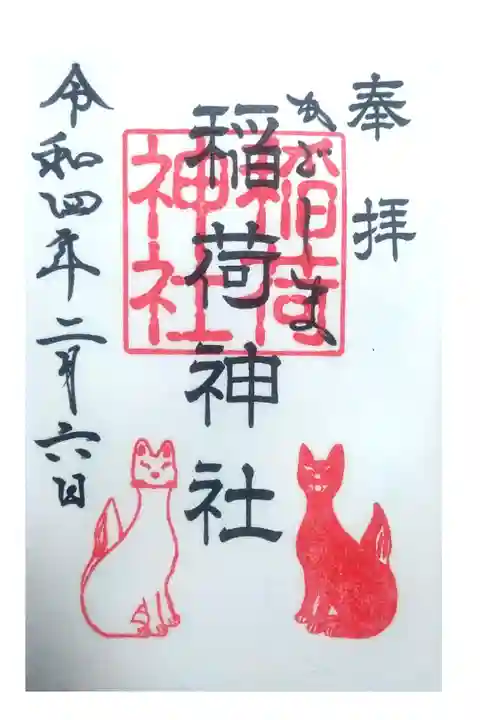 奉拝
稲荷神社
稲荷
神社
令和四年二月六日